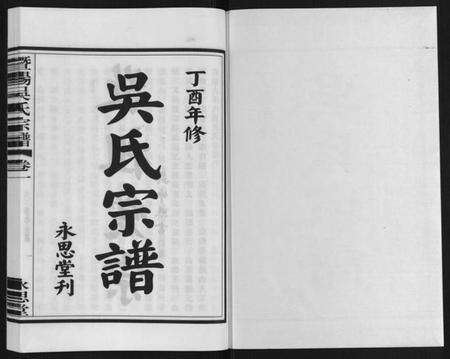 丁酉年修
吳氏宗譜
永思堂刊
暨陽吳氏宗譜
卷一
永思堂